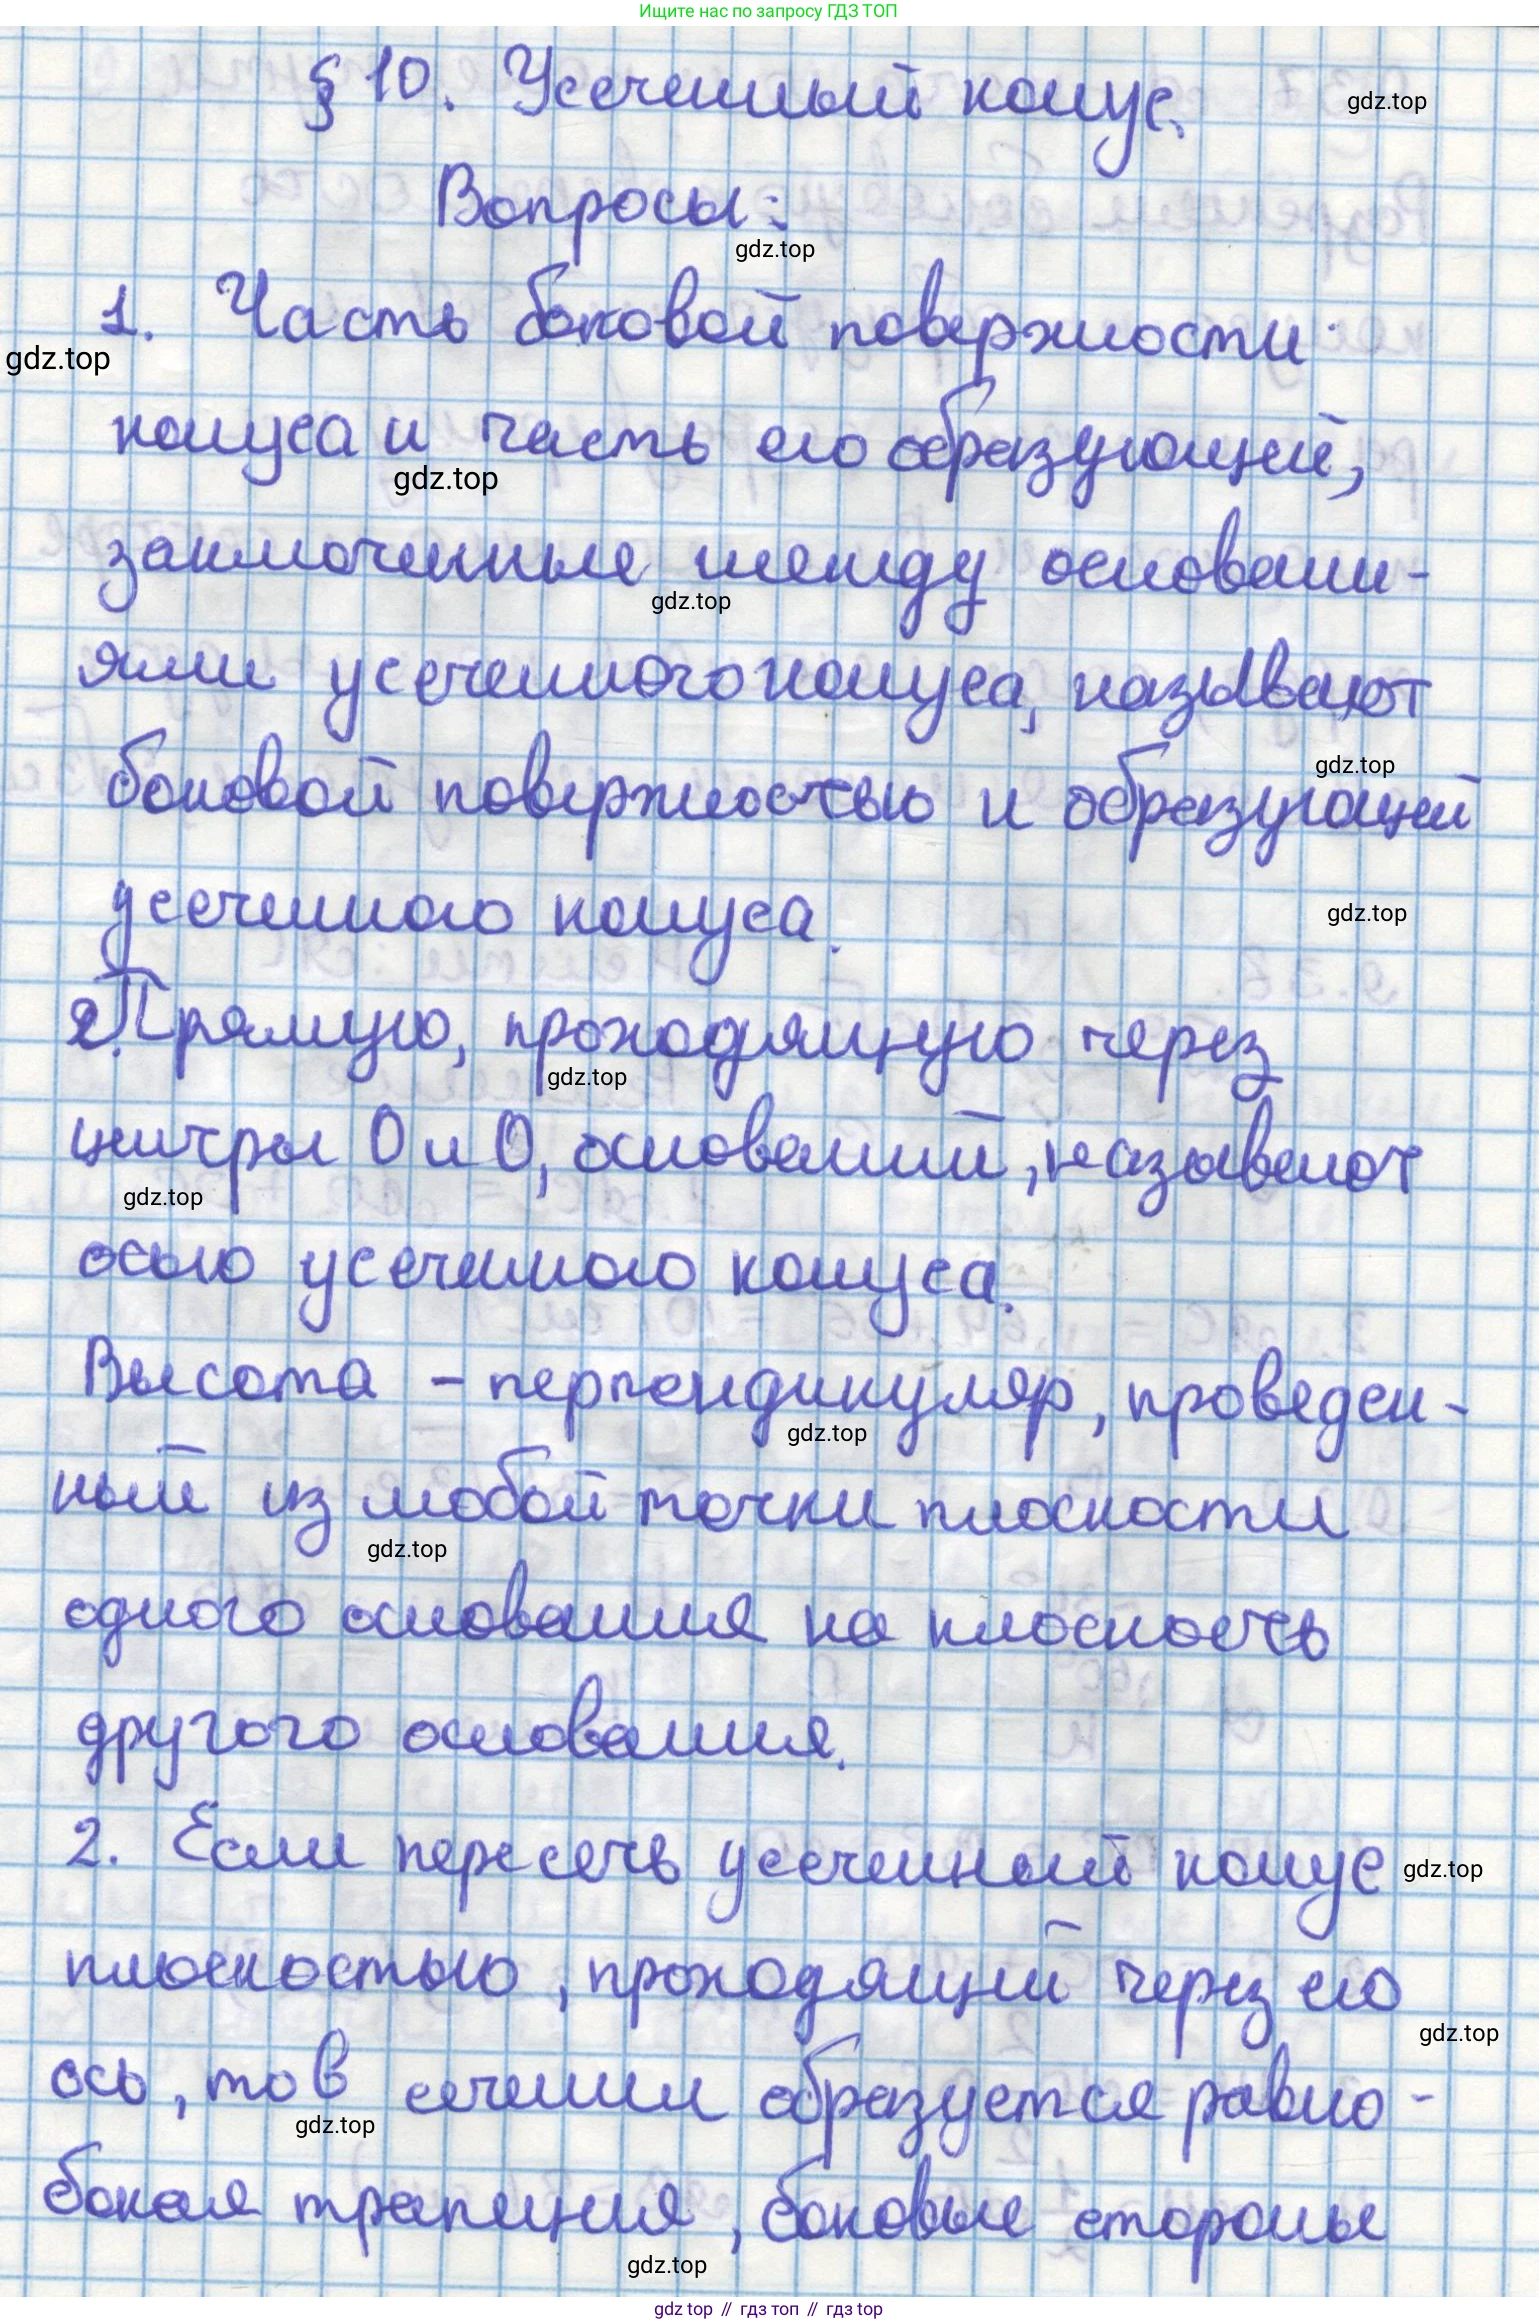 Ищите нас по запросу ГДЗ ТОП
§ 10. Усеченный конус.
gdz.top
Вопросы:
gdz.top
1. Часть боковой поверхности
gdz.top
конуса и часть его образующей,
gdz.top
заключенные между основани-
gdz.top
ями усеченного конуса, называют
gdz.top
боковой поверхностью и образующей
усеченного конуса.
gdz.top
2. Прямую, проходящую через
gdz.top
центры O и O, оснований, называют
gdz.top
осью усеченного конуса.
Высота - перпендикуляр, проведен-
gdz.top
ный из любой точки плоскости
gdz.top
одного основания на плоскость
другого основания.
2. Если пересечь усеченный конус
gdz.top
плоскостью, проходящий через его
gdz.top
ось, то в сечении образуется равно-
gdz.top
бокая трапеция, боковые стороны
gdz.top
gdz top // гдз топ // гдз top